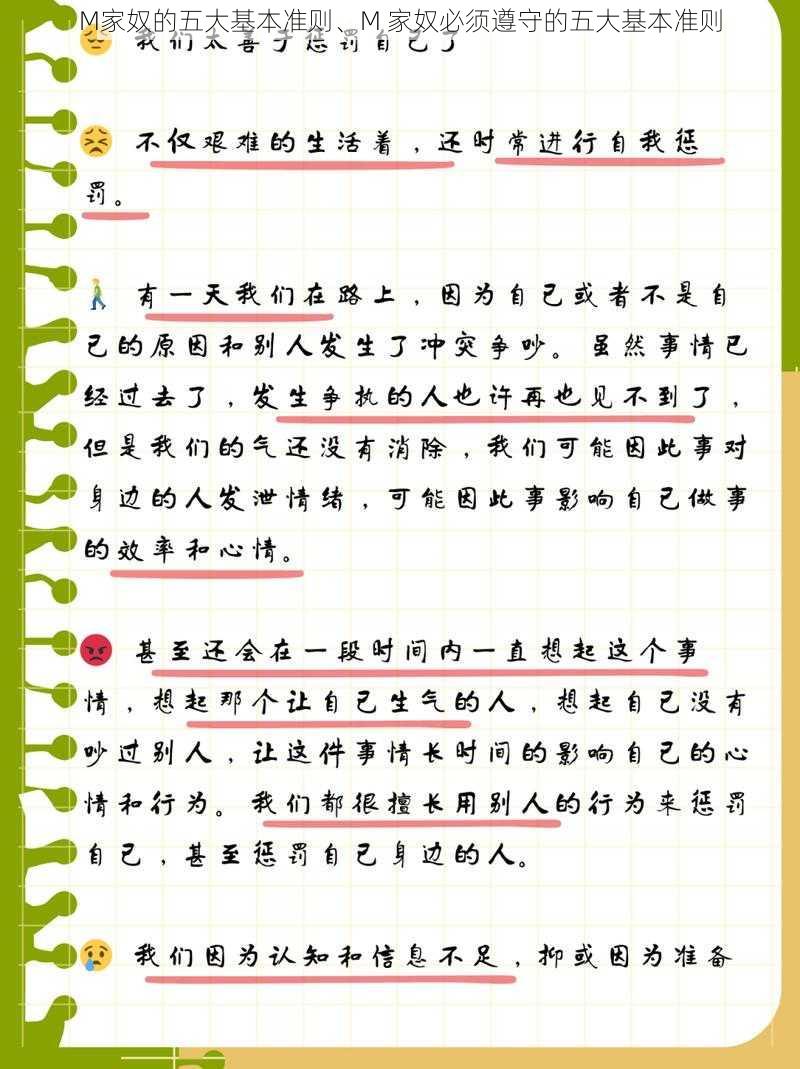 M家奴的五大基本准则、M 家奴必须遵守的五大基本准则
我们太善于惩罚自己了
不仅艰难的生活着，还时常进行自我惩
罚。
有一天我们在路上，因为自己或者不是自
己的原因和别人发生了冲突争吵。虽然事情已
经过去了，发生争执的人也许再也见不到了，
但是我们的气还没有消除，我们可能因此事对
身边的人发泄情绪，可能因此事影响自己做事
的效率和心情。
甚至还会在一段时间内一直想起这个事
情，想起那个让自己生气的人，想起自己没有
吵过别人，让这件事情长时间的影响自己的心
情和行为。我们都很擅长用别人的行为来惩罚
自己，甚至惩罚自己身边的人。
我们因为认知和信息不足，抑或因为准备